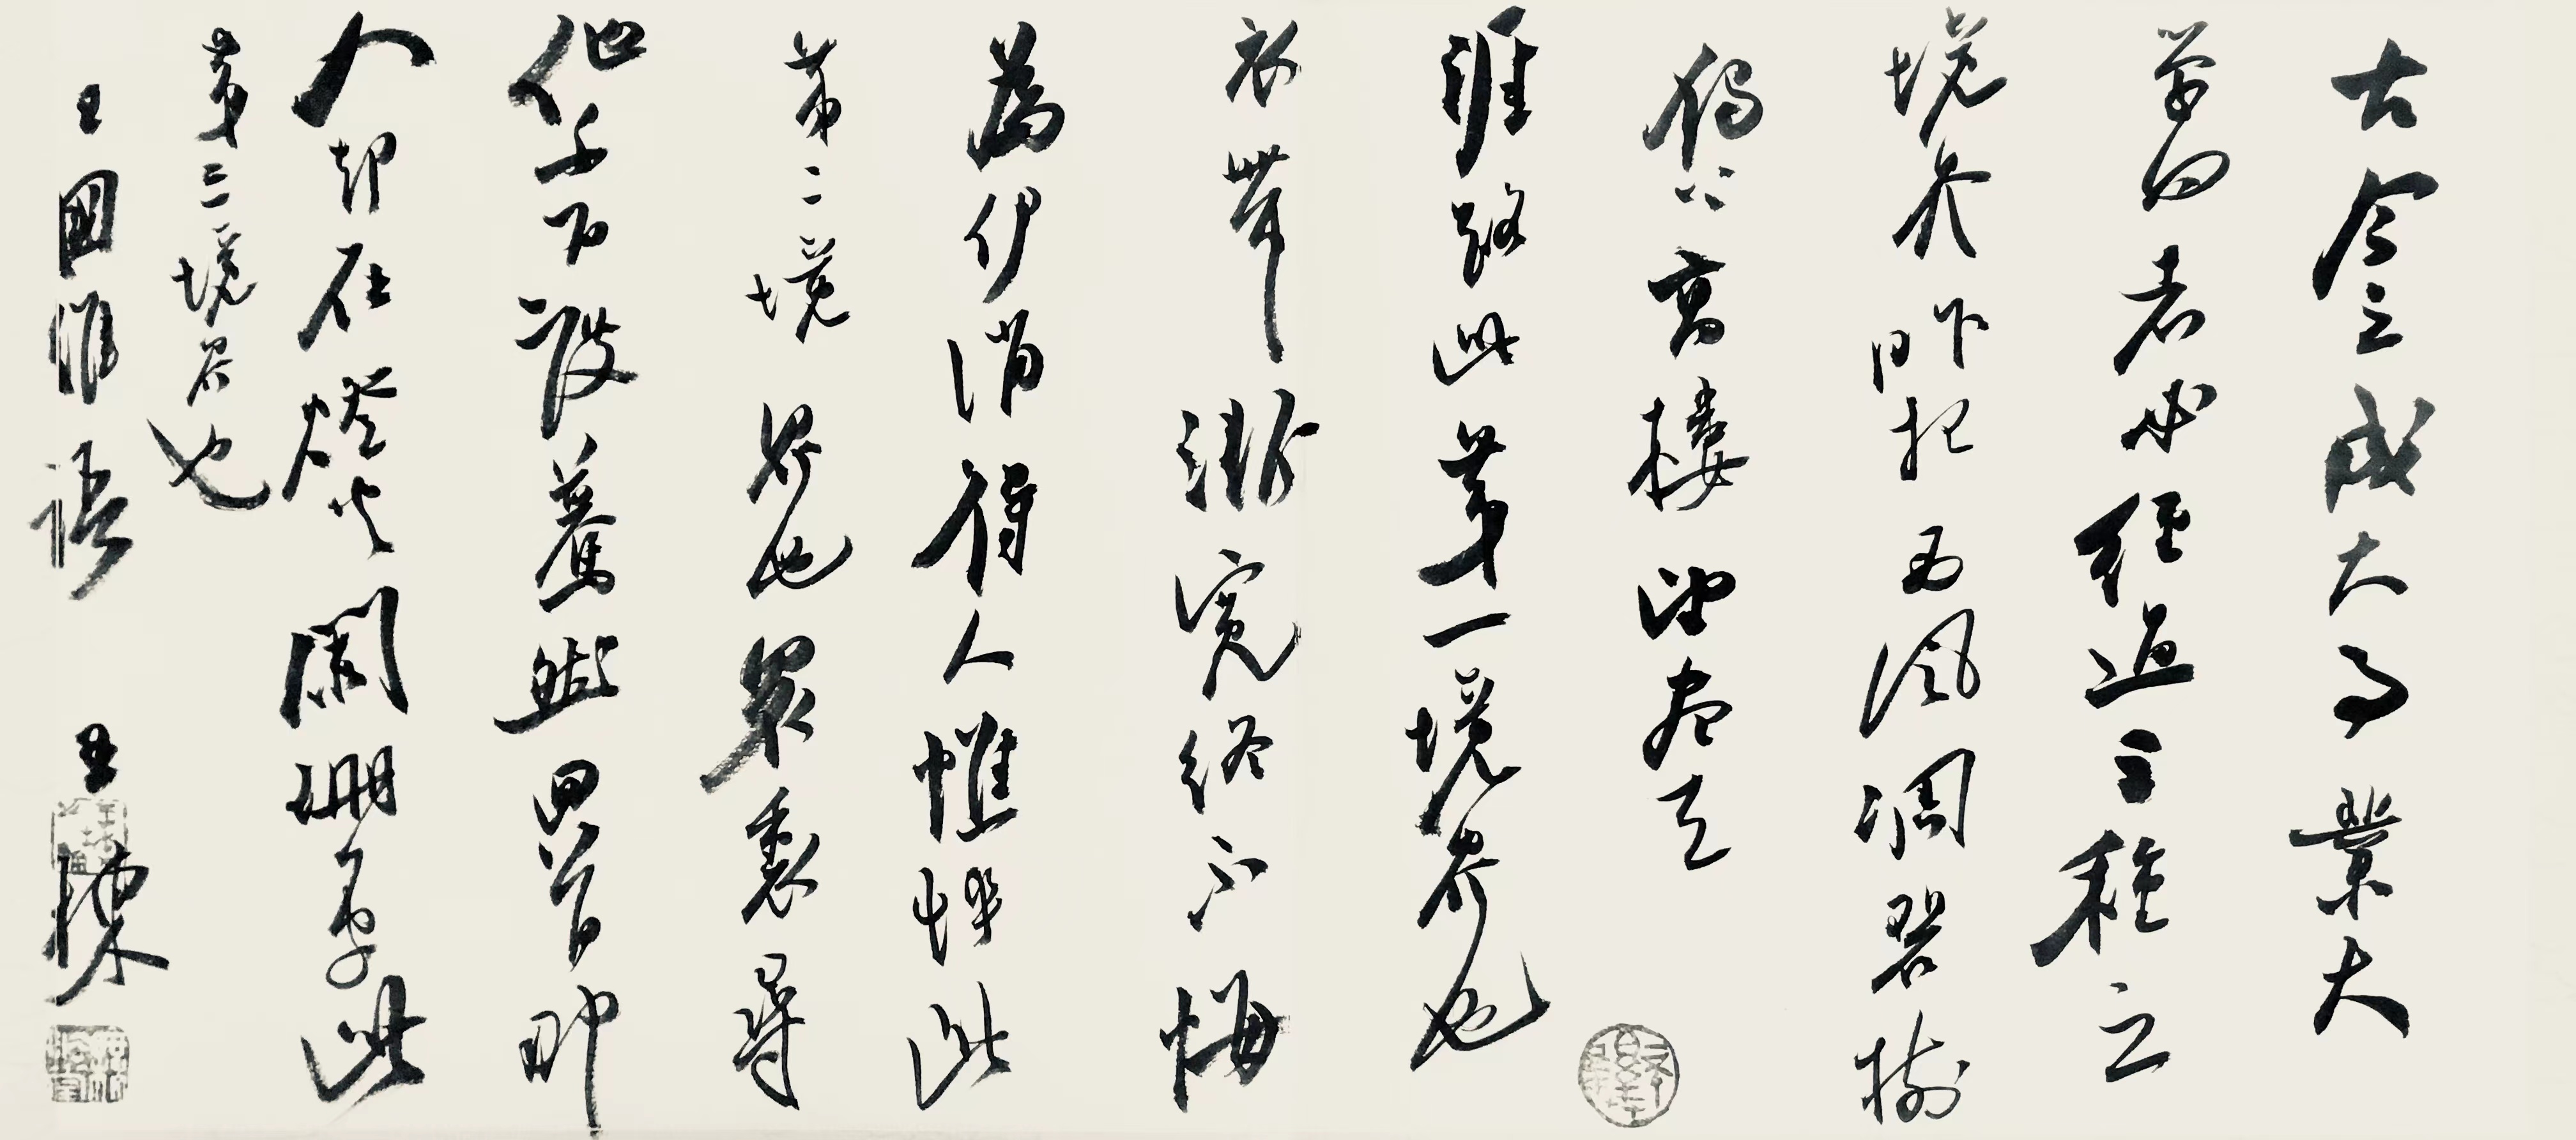 古今之成大事業大
學問者必經過三種之
境界昨夜西風凋碧樹
獨上高樓望盡天
涯路此第一境界也
衣帶漸寬終不悔
為伊消得人憔悴此
第二境界也眾裏尋
他千百度驀然回首那
人却在燈火闌珊處此
第三境界也
王國維語